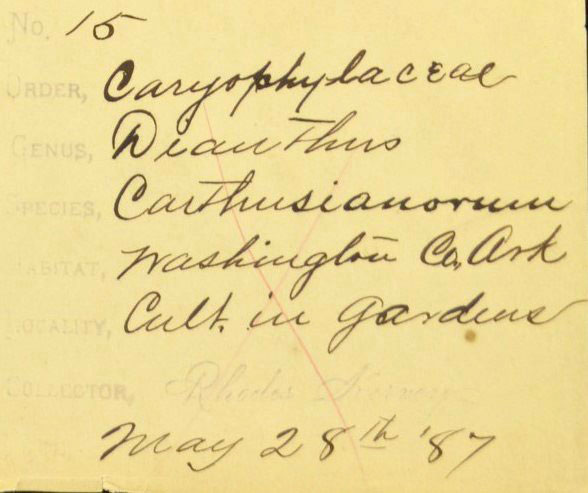 No. 15
ORDER, Caryophylaceae
GENUS, Dianthus
SPECIES, Carthusianorum
HABITAT, Washington Co. Ark
LOCALITY, Cult. in Gardens
COLLECTOR, Rhodes
May 28th '87